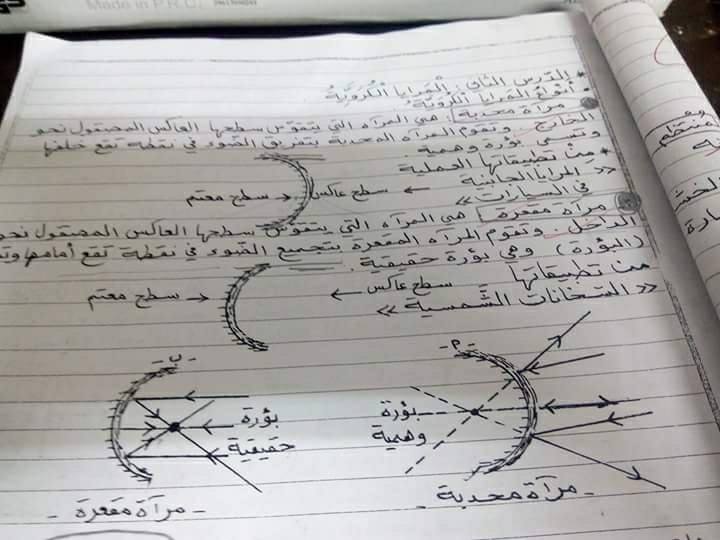 Made in P.R.C.
* الدرس الثاني: المرايا الكروية
* أنواع المرايا الكروية:
مرآة محدبة: هي المرآه التي يتقوس سطحها العاكس المصقول نحو
الخارج. وتقوم المرآه المحدبة بتفريق الضوء في نقطة تقع خلفها
وتسمى بؤرة وهمية.
* من تطبيقاتها العملية
<< المرايا الجانبية
في السيارات >>
سطح عاكس
سطح معتم
مرآة مقعرة: هي المرآه التي يتقوس سطحها العاكس المصقول نحو
الداخل. وتقوم المرآه المقعرة بتجميع الضوء في نقطة تقع أمامها
(البؤرة) وهي بؤرة حقيقية.
من تطبيقاتها
<< السخانات الشمسية >>
سطح عاكس
سطح معتم
بؤرة
وهمية
- مرآة محدبة -
- ب -
بؤرة
حقيقية
- مرآة مقعرة -